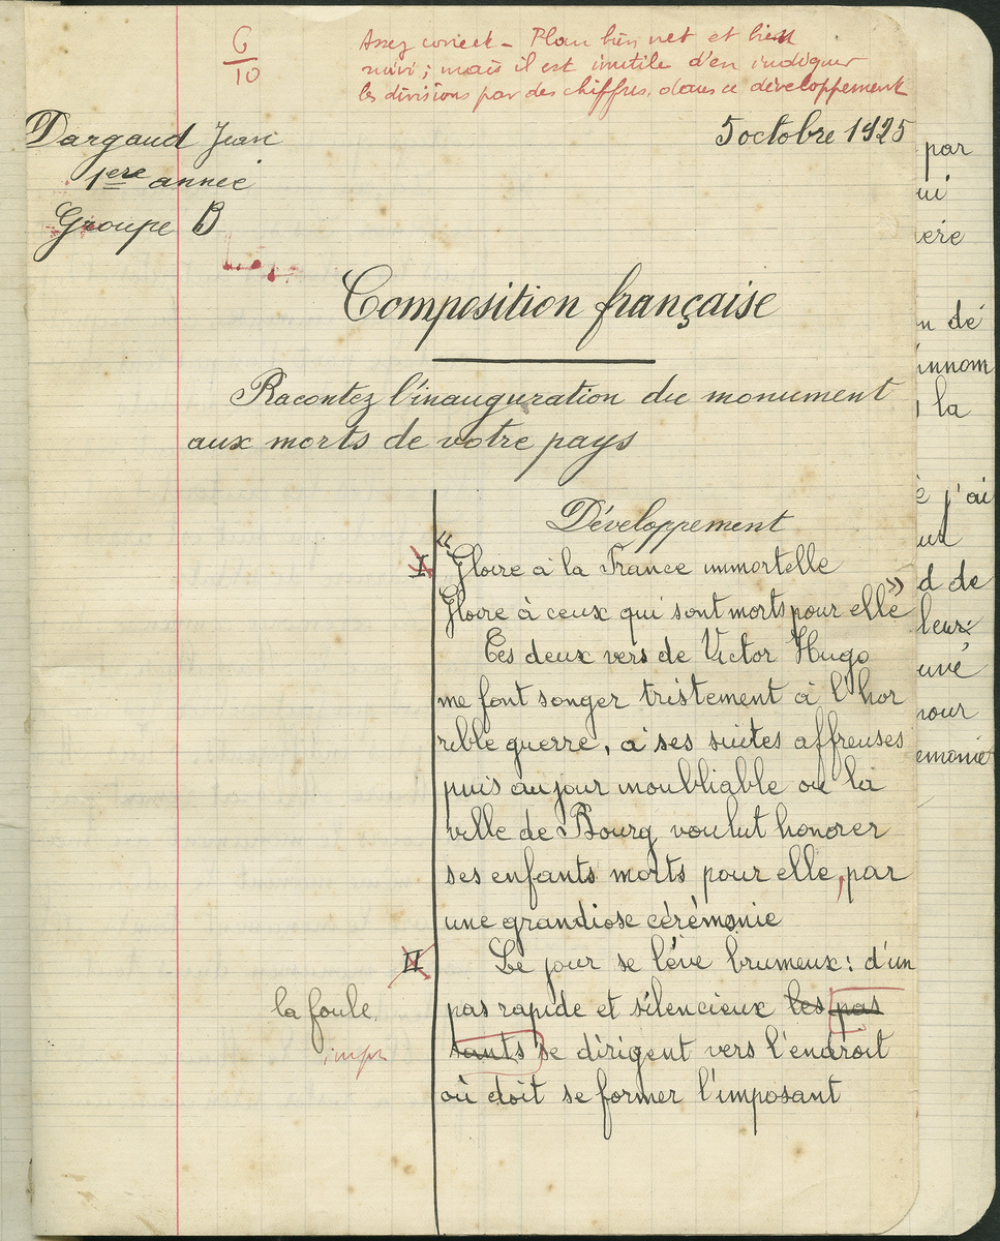 6
10
Assez correct - Plan bien net et bien
suivi ; mais il est inutile d'en indiquer
les divisions par des chiffres, dans ce développement
Dargaud Jean
1ere année
Groupe B
5 octobre 1925
Composition française
Racontez l'inauguration du monument
aux morts de votre pays
Développement
I "Gloire à la France immortelle
Gloire à ceux qui sont morts pour elle"
Ces deux vers de Victor Hugo
me font songer tristement à l'hor
rible guerre, à ses suites affreuses
puis au jour inoubliable où la
ville de Bourg voulut honorer
ses enfants morts pour elle, par
une grandiose cérémonie
II Le jour se lève brumeux : d'un
pas rapide et silencieux les pas
sants se dirigent vers l'endroit
où doit se former l'imposant
la foule
impr
par
ui
n de
nnom
la
j'ai
d de
leur
uvé
pour
emonie